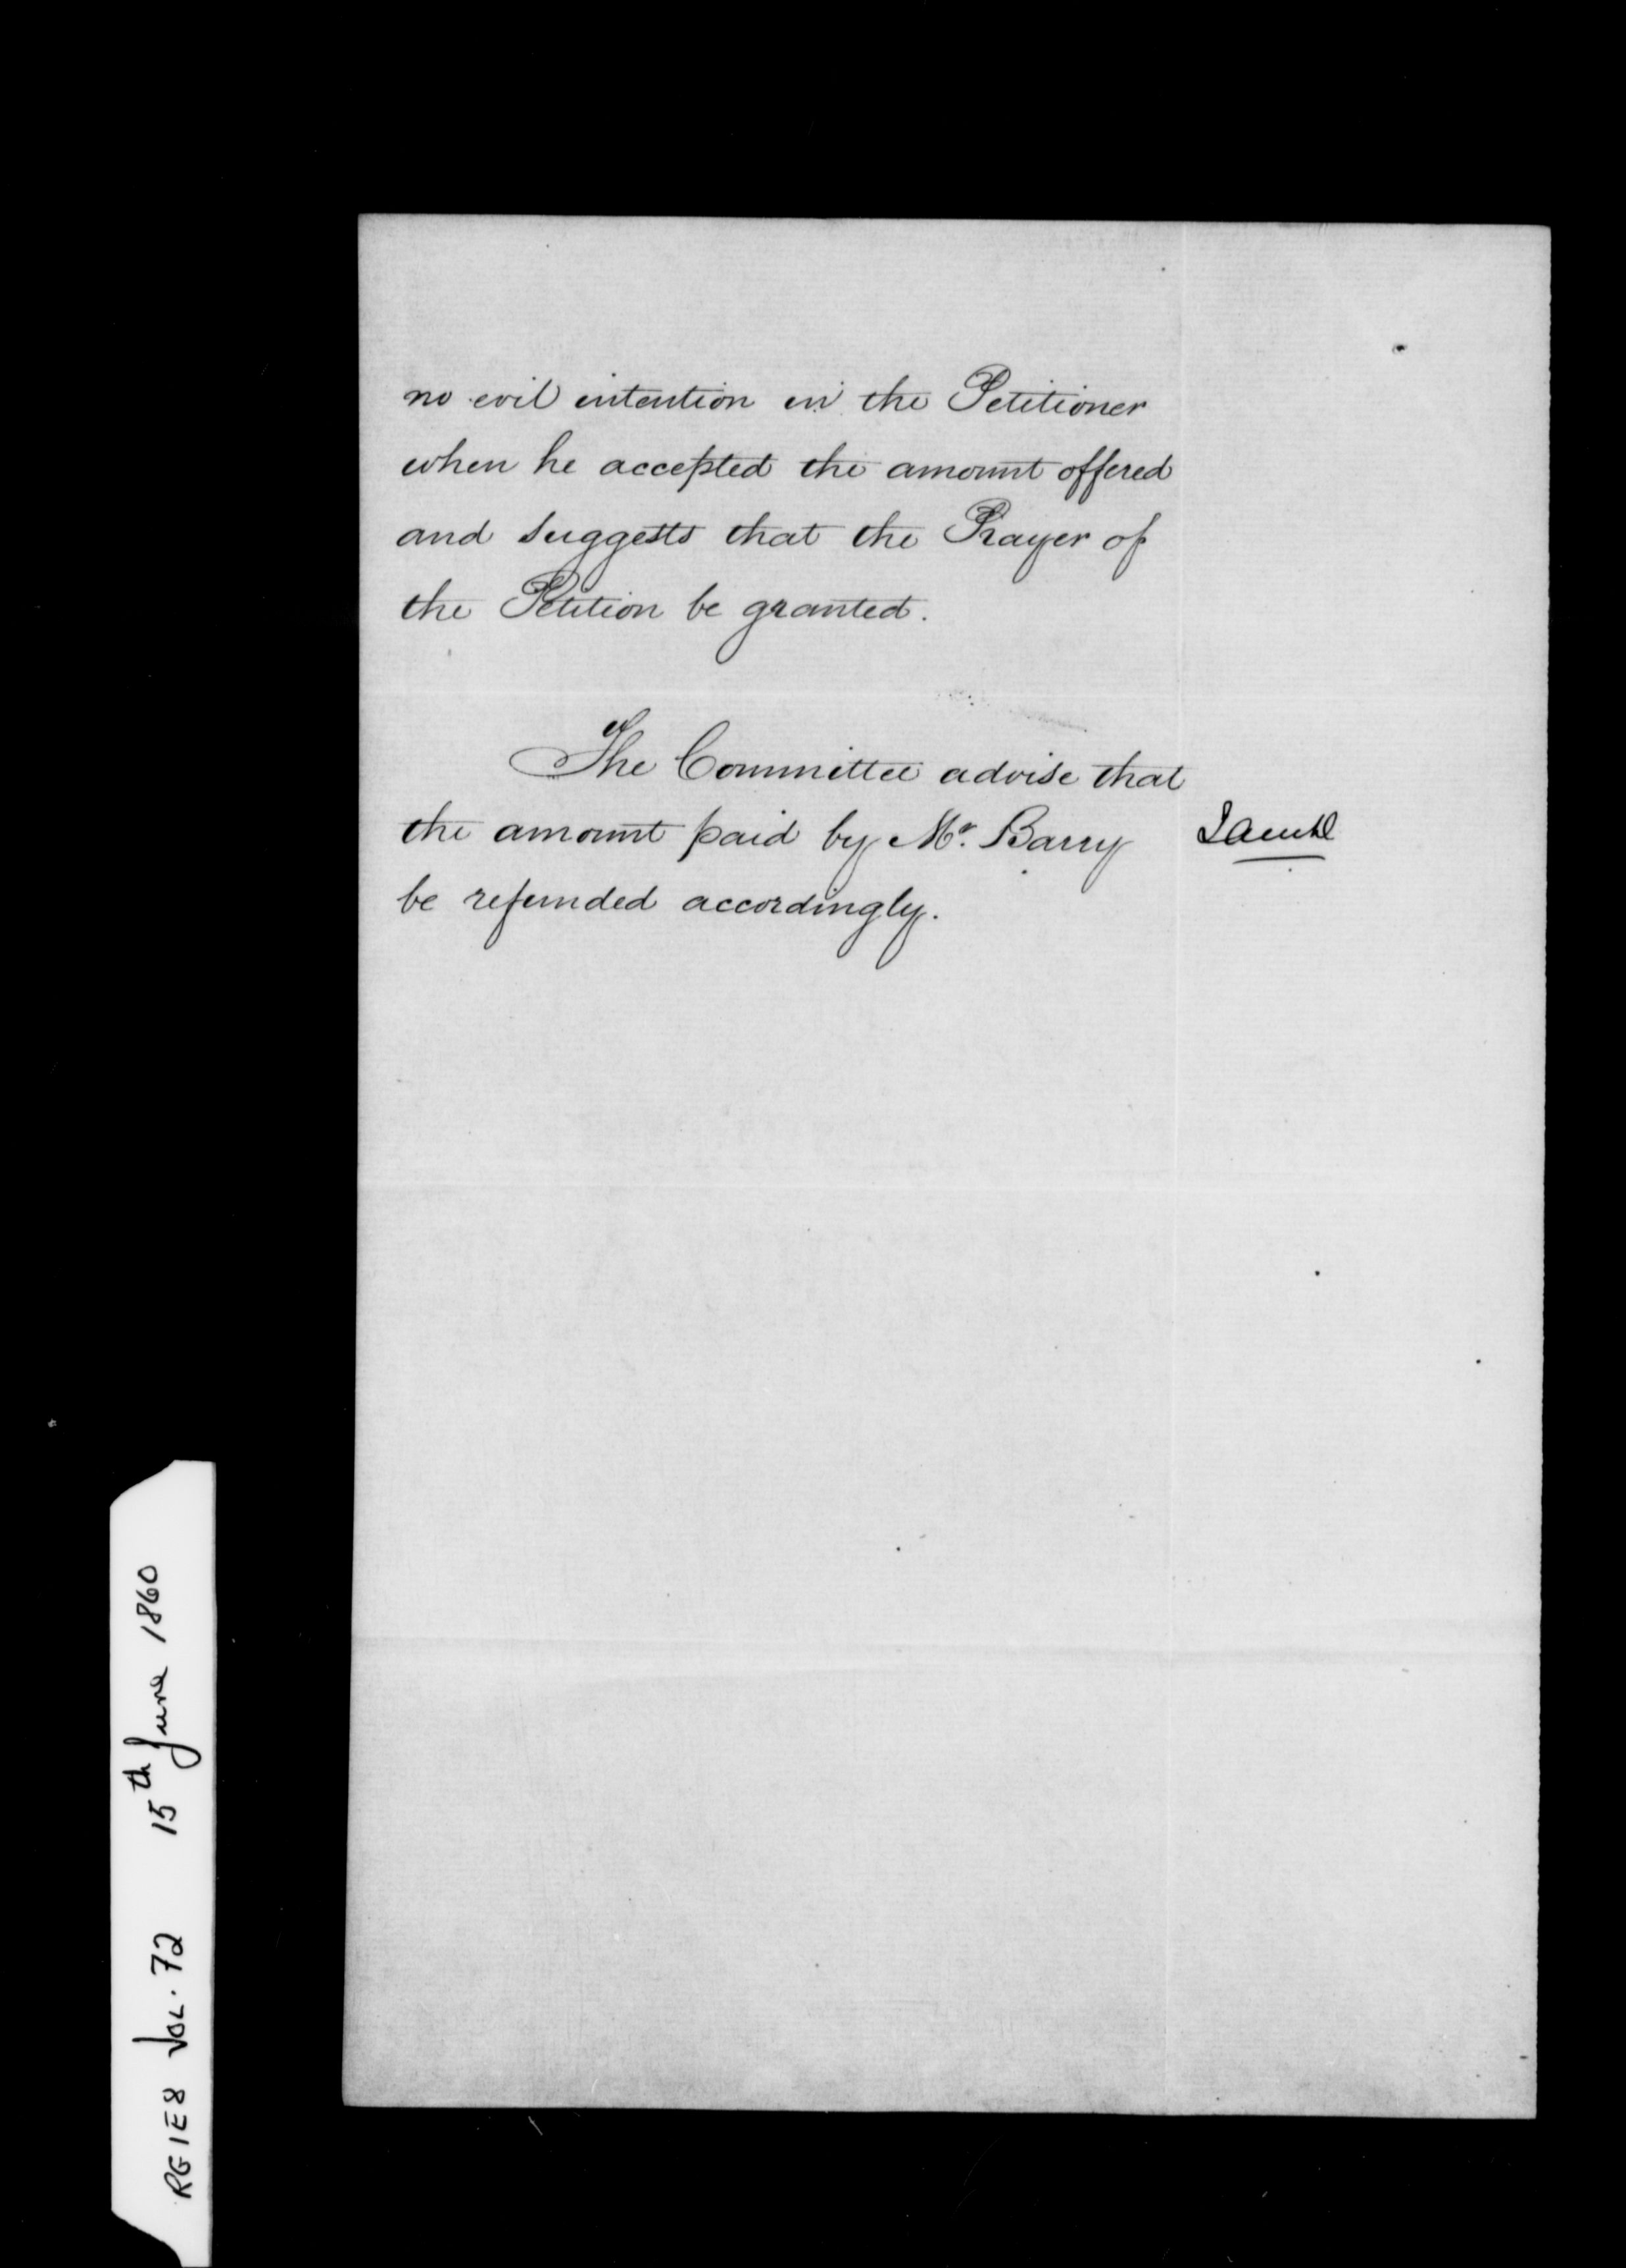 no evil intention in the Petitioner
when he accepted the amount offered
and suggests that the Prayer of
the Petition be granted.
The Committee advise that
the amount paid by Mr. Barry
be refunded accordingly.
RG1E8 VOL. 72 15th June 1860